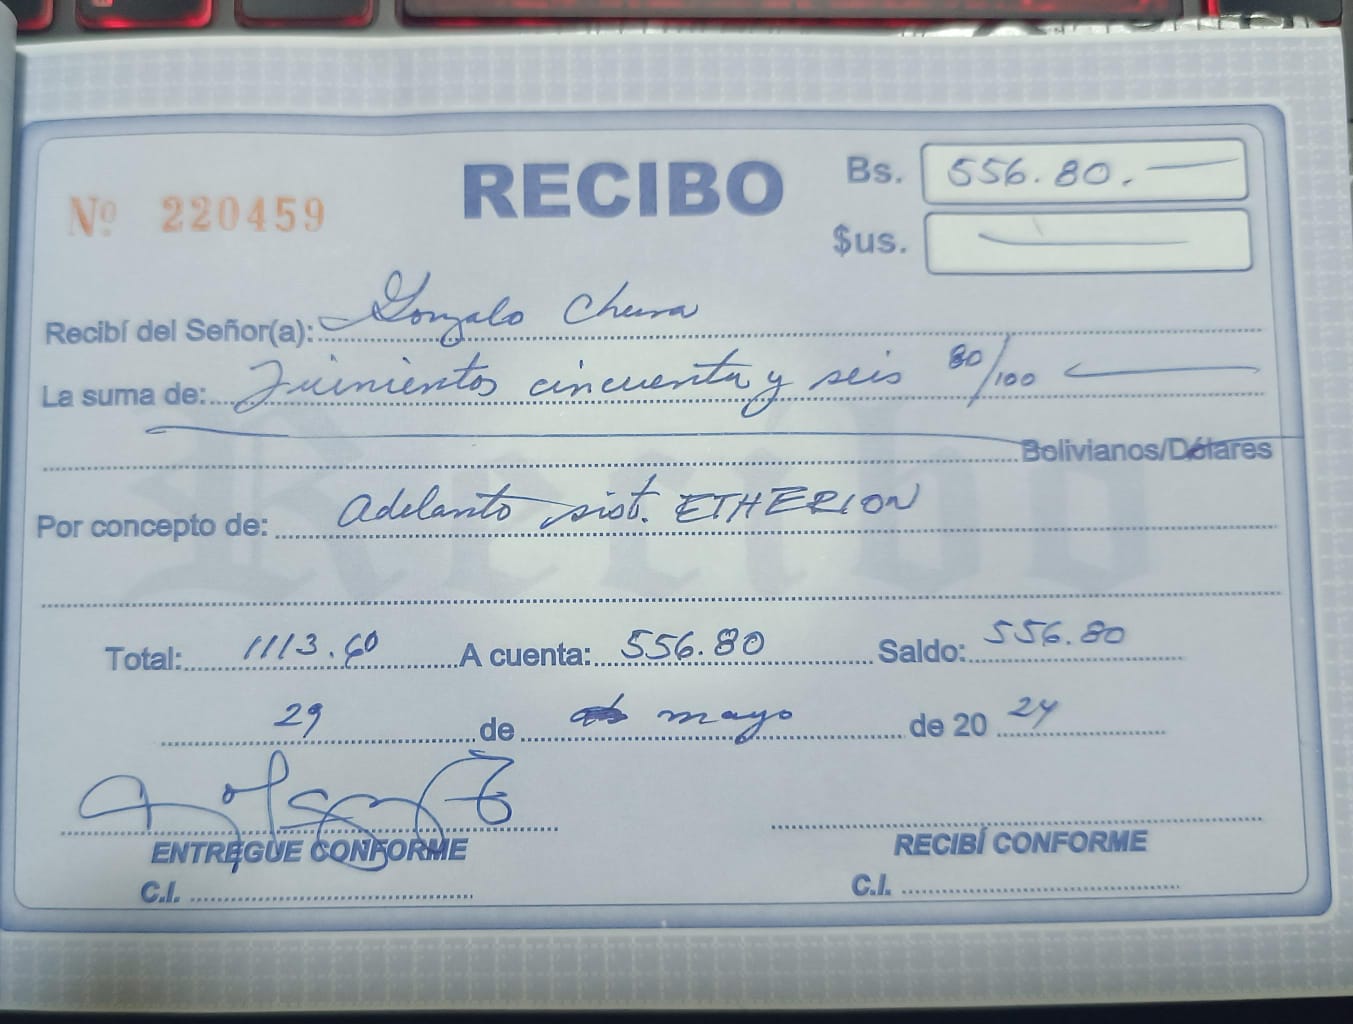 Nº 220459
RECIBO
Bs. 556.80.
$us.
Recibí del Señor(a): Gonzalo Chura
La suma de: Quinientos cincuenta y seis 80/100
Bolivianos/Dólares
Por concepto de: Adelanto sist. ETHERION
Recibo
Total: 1113.60 A cuenta: 556.80 Saldo: 556.80
29 de mayo de 20 24
ENTREGUE CONFORME
RECIBÍ CONFORME
C.I.
C.I.